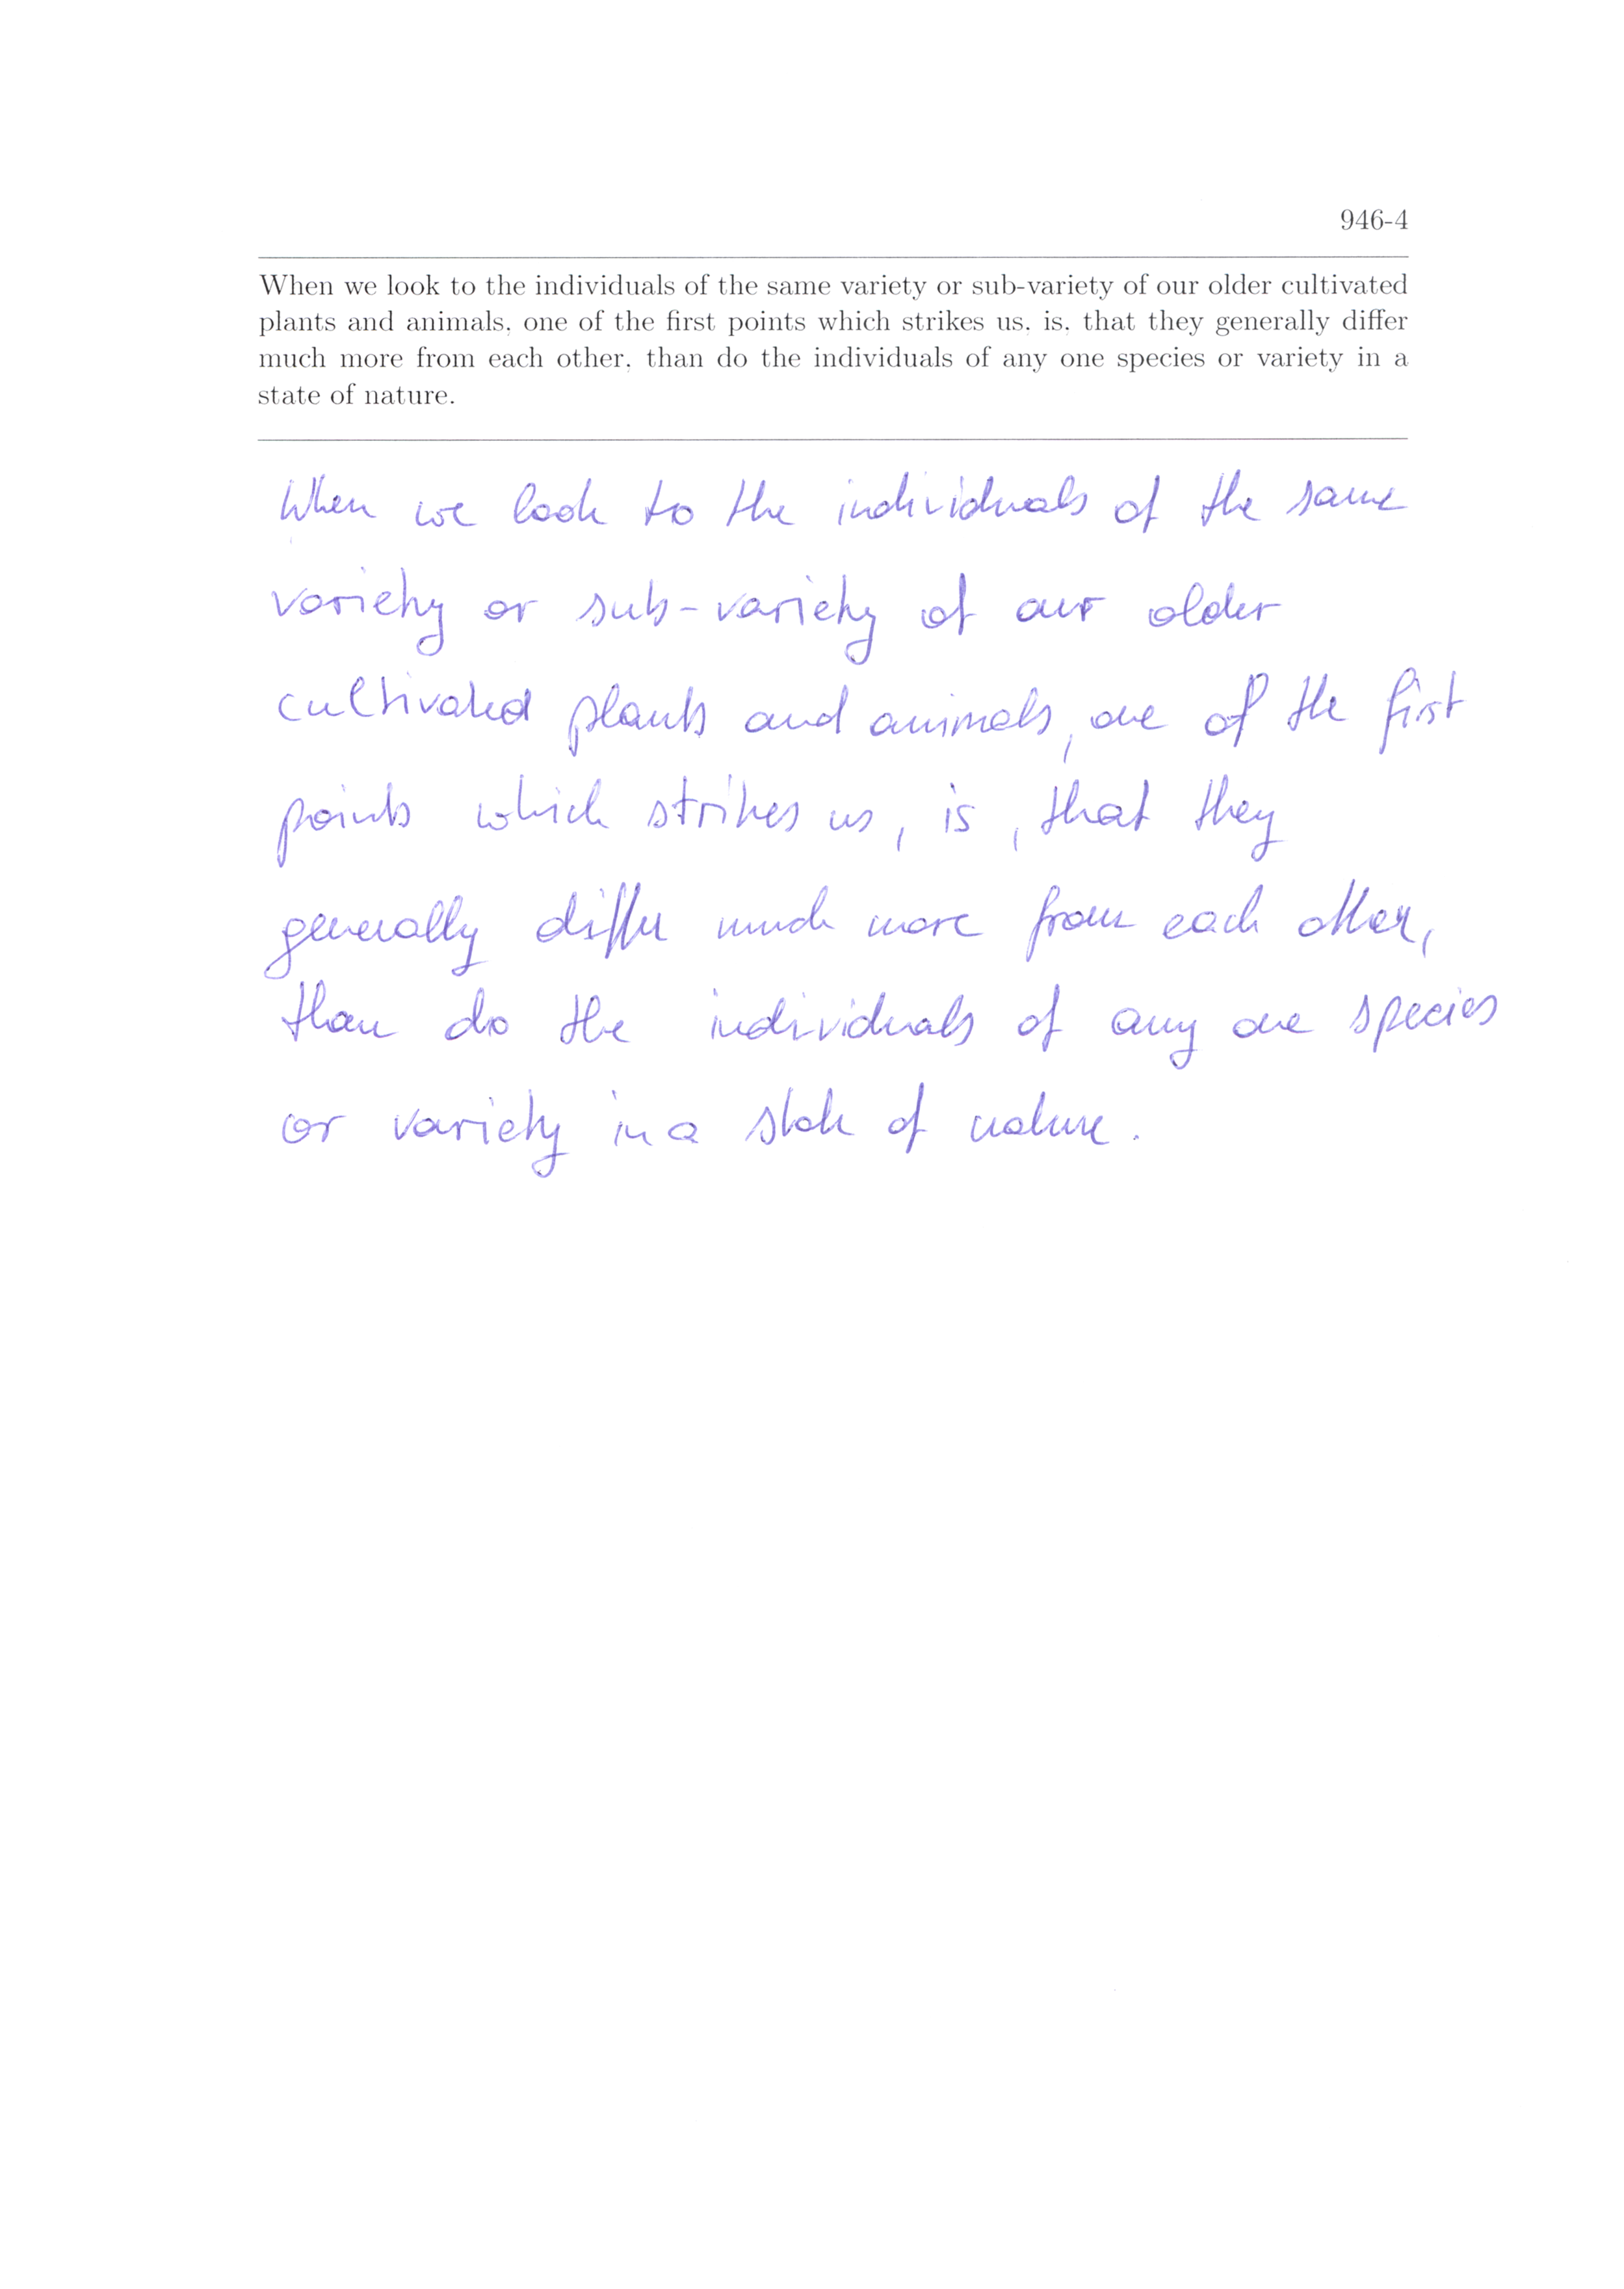 946-4
When we look to the individuals of the same variety or sub-variety of our older cultivated
plants and animals, one of the first points which strikes us, is, that they generally differ
much more from each other, than do the individuals of any one species or variety in a
state of nature.
When we look to the individuals of the same
variety or sub-variety of our older
cultivated plants and animals, one of the first
points which strikes us, is, that they
generally differ much more from each other,
than do the individuals of any one species
or variety in a state of nature.